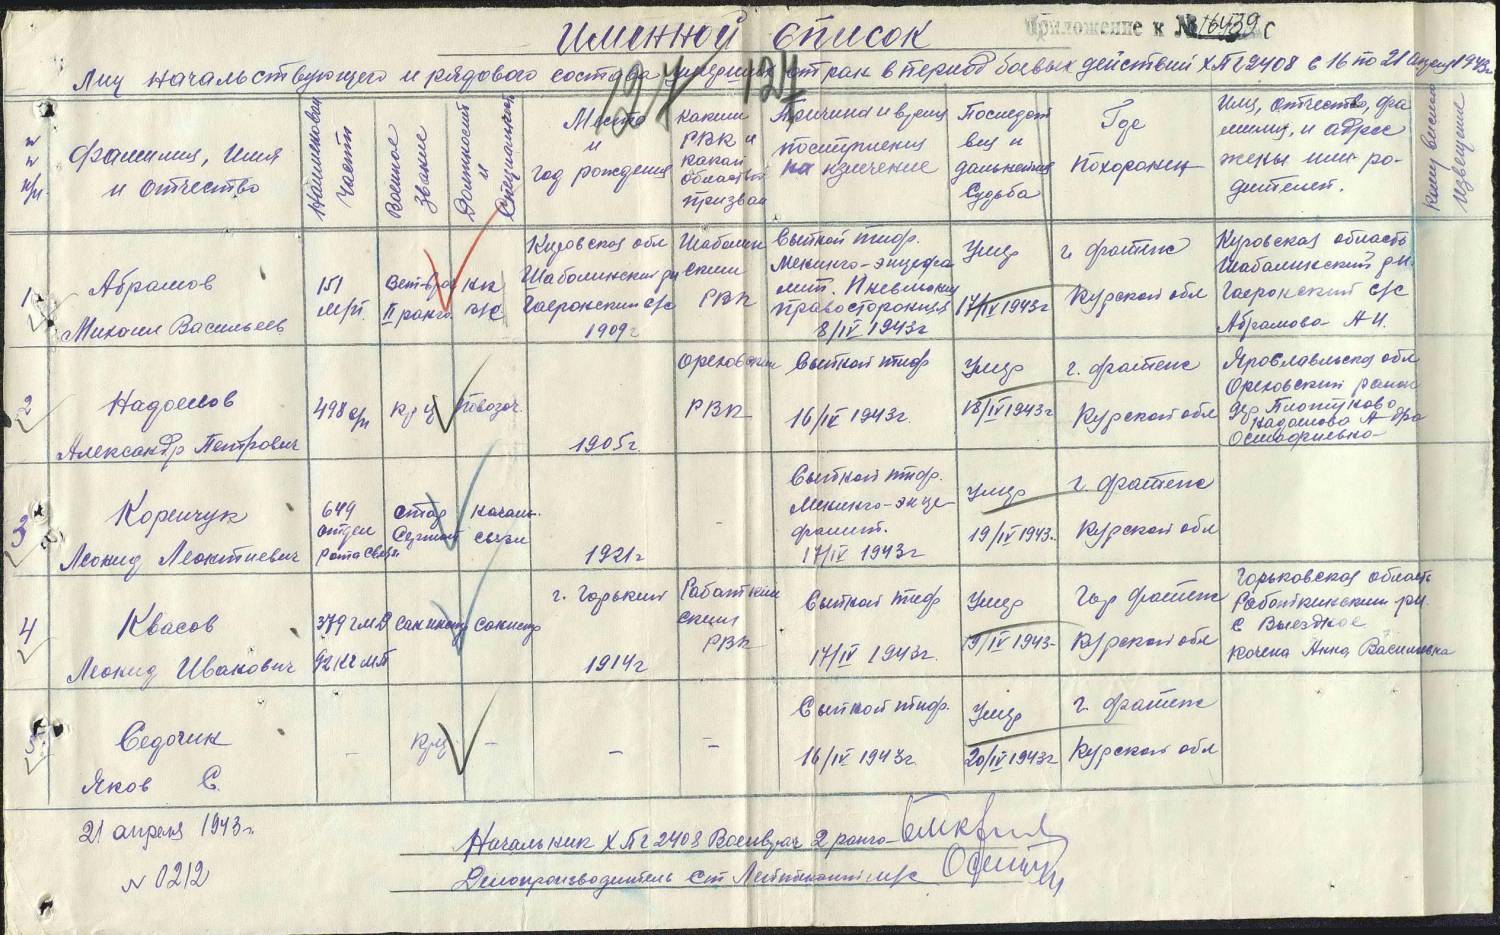 Приложение к № 16439 с
Именной список
Лиц начальствующего и рядового состава умерших от ран в период боевых действий ХПГ 2408 с 16 по 21 апреля 1943г
124
№№ п/п
Фамилия, имя и отчество
Наименован части
Военное звание
Должность и специальност
Место и год рождения
каким РВК и какой областью призван
Причина и время поступления на излечение
Последств вия и дальнейшая судьба
Где похоронен
Имя, отчество, фамилия, и адрес жены или родителей.
Кому выслано извещение
1
Абрамов
Михаил Васильев
151
м/п
Вет-врач
II ранга
Кировская обл
Шабалинский р-н
Гостовский с/с
1909г
Шабалин
ский
РВК
Сыпной тиф.
Менинго-энцефа
лит. Пневмония
правосторонняя
8/IV 1943г
Умер
17/IV 1943г
г. Фатеж
Курской обл
Кировская область
Шабалинский р-н
с/с
Абрамова А И.
2
Надоенов
Александр Петрович
498 с/п
Кр-ц
Повозоч.
1905г
РВК
Сыпной тиф
16/IV 1943г.
Умер
18/IV 1943г
г. Фатеж
Курской обл
Ярославльска обл
район
дер
3
Коренчук
Леонид Леонтиевич
649
отдел
рота связи
стар
Сержант
началь.
связи
1921г
-
Сыпной тиф.
Менинго-энце-
фалит.
17/IV 1943г
Умер
19/IV 1943г.
г. Фатеж
Курской обл
4
Квасов
Леонид Иванович
сакинстр
г. Горький
1914г
Работкин
ский
РВК
Сыпной тиф
17/IV 1943г.
Умер
19/IV 1943г
Гор Фатеж
Курской обл
Горьковская область
Работкинский р-н.
с Выездное
Анна Васильевна
5
Седочик
Яков С.
-
Кр-ц
-
-
-
Сыпной тиф.
16/IV 1943г.
Умер
20/IV 1943г
г. Фатеж
Курской обл
21 апреля 1943г.
Начальник ХПГ 2408 Военврач 2 ранга
№ 0212
Делопроизводитель Ст Лейтенант а/с